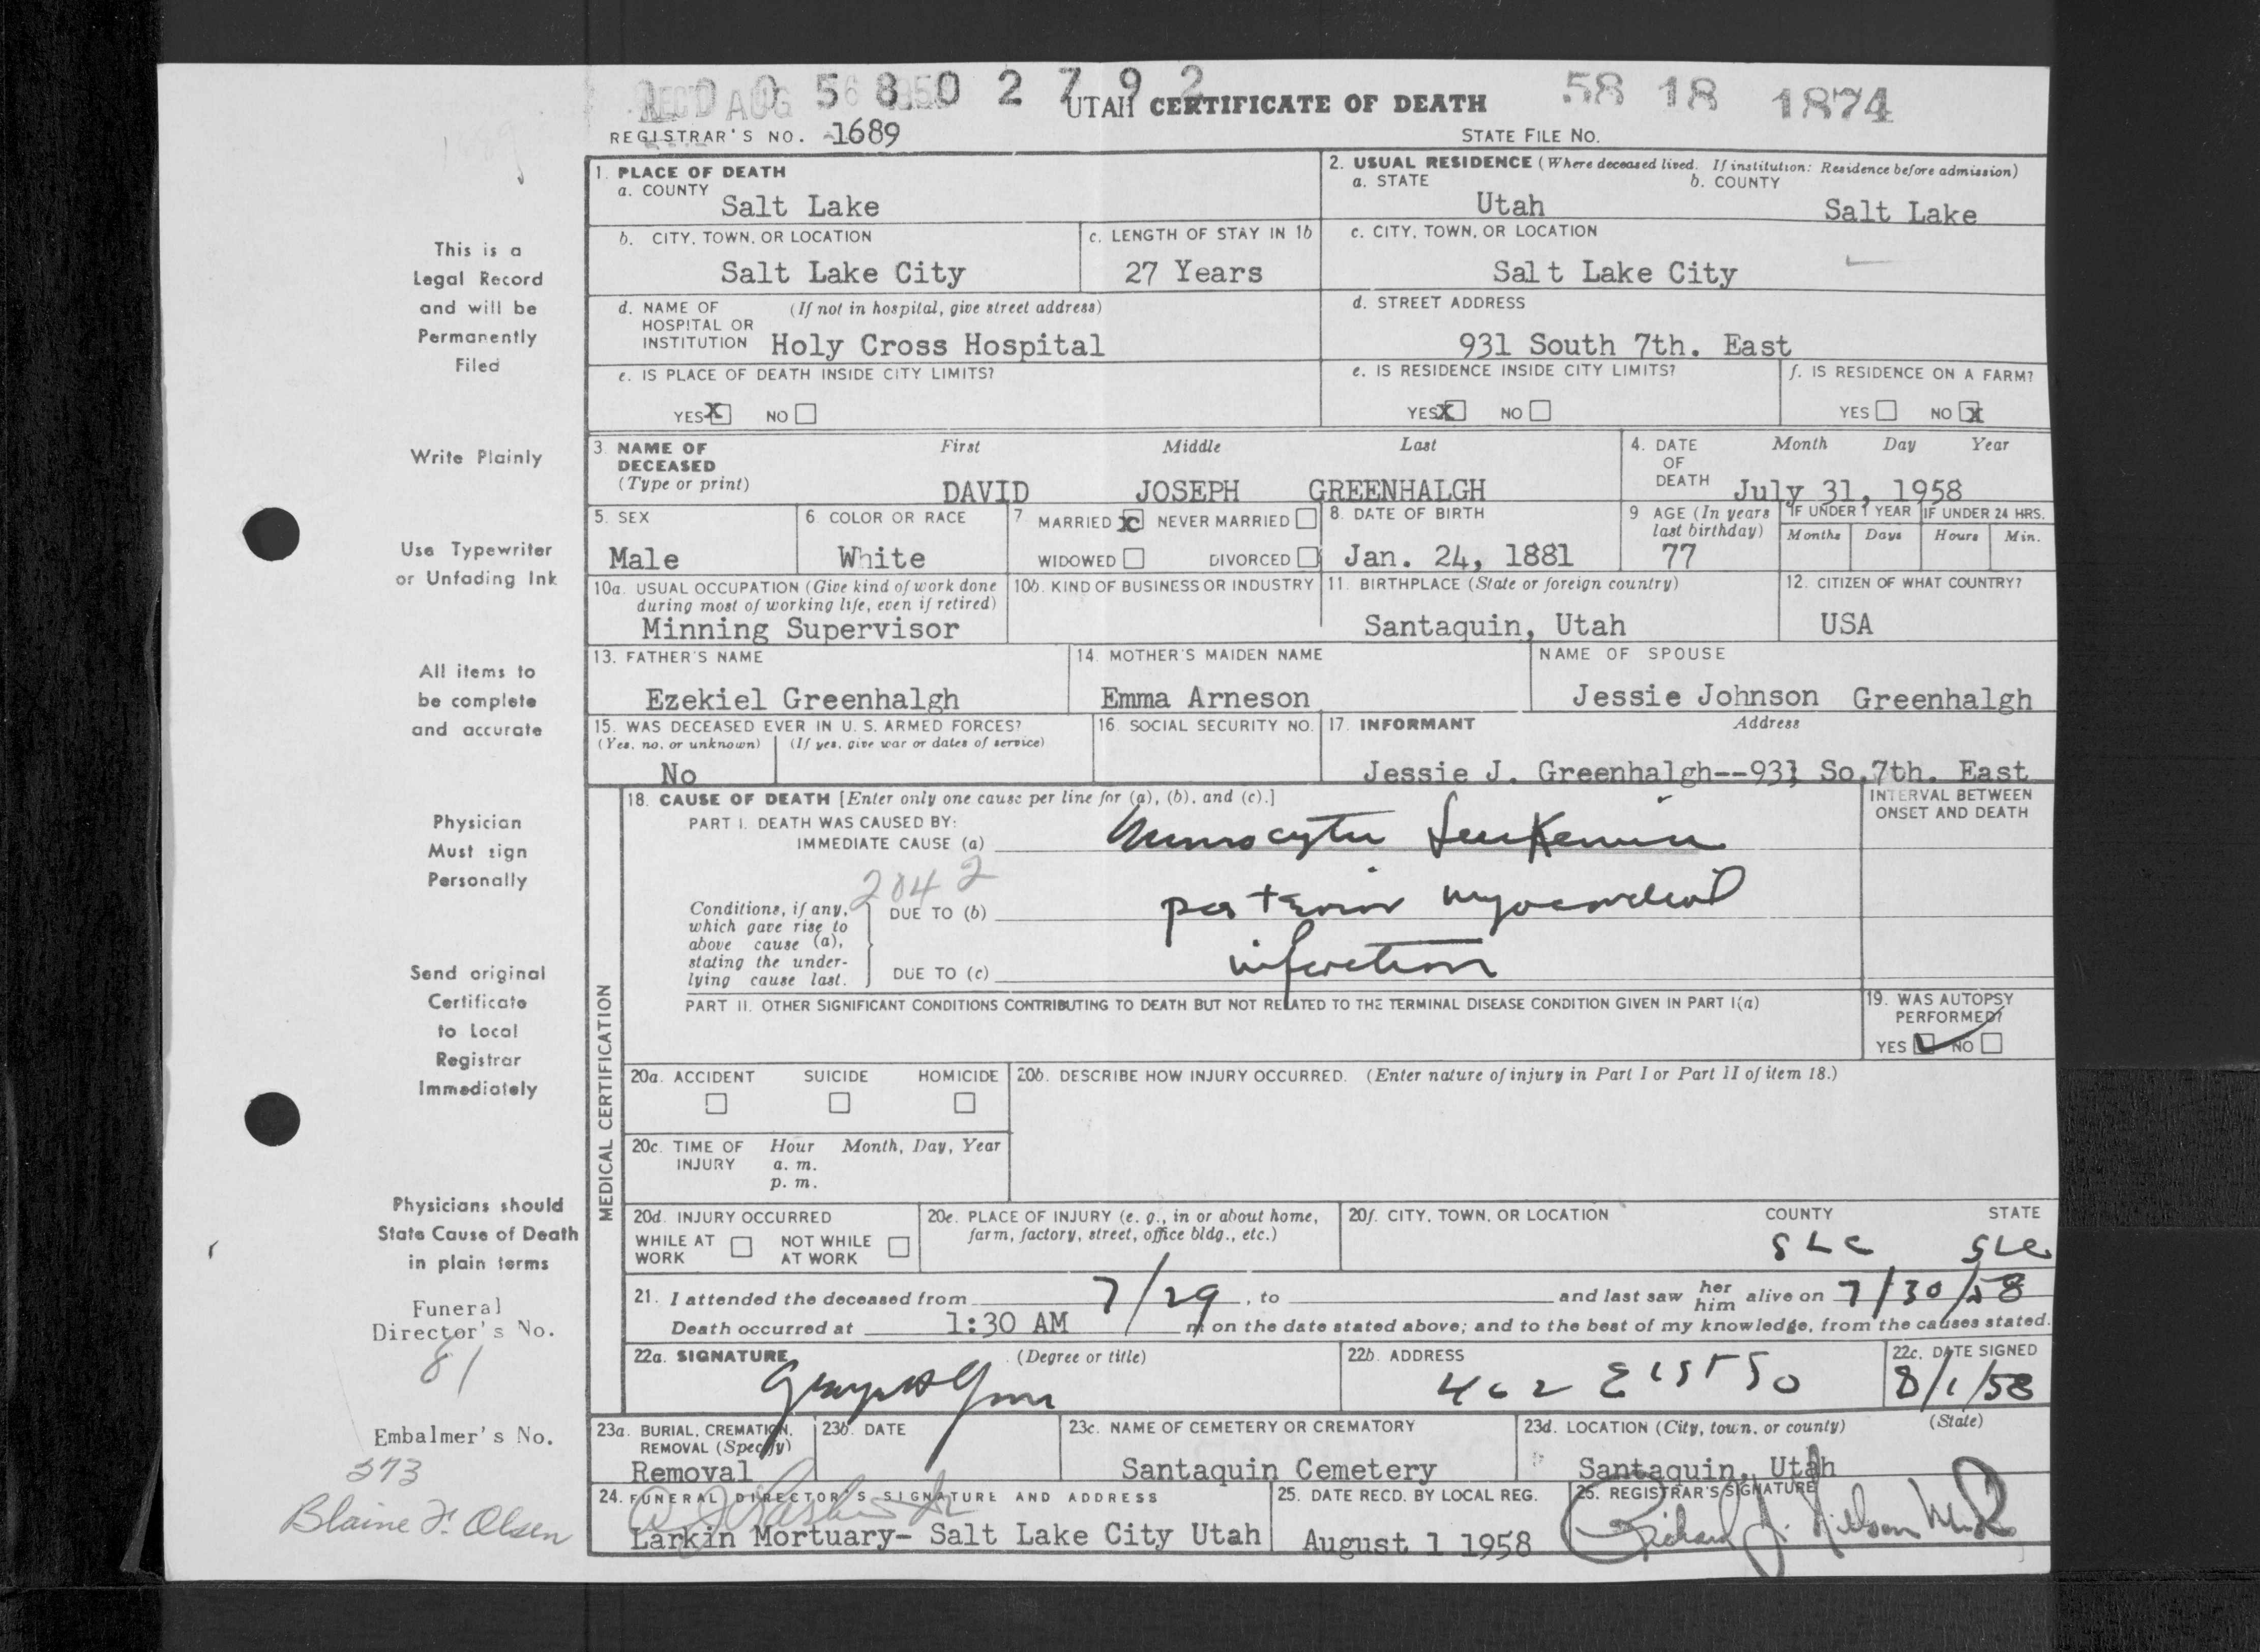 REC'D AUG 6 1958
1 0 0 5 8 0 2 7 9 2
UTAH CERTIFICATE OF DEATH
58 18 1874
REGISTRAR'S NO. 1689
STATE FILE NO.
1689
1. PLACE OF DEATH
a. COUNTY
Salt Lake
2. USUAL RESIDENCE (Where deceased lived. If institution: Residence before admission)
a. STATE b. COUNTY
Utah Salt Lake
b. CITY, TOWN, OR LOCATION
Salt Lake City
c. LENGTH OF STAY IN 1b
27 Years
c. CITY, TOWN, OR LOCATION
Salt Lake City
d. NAME OF (If not in hospital, give street address)
HOSPITAL OR
INSTITUTION Holy Cross Hospital
d. STREET ADDRESS
931 South 7th. East
e. IS PLACE OF DEATH INSIDE CITY LIMITS?
YES X NO
e. IS RESIDENCE INSIDE CITY LIMITS?
YES X NO
f. IS RESIDENCE ON A FARM?
YES NO X
3. NAME OF DECEASED (Type or print)
First Middle Last
DAVID JOSEPH GREENHALGH
4. DATE OF DEATH
Month Day Year
July 31, 1958
5. SEX
Male
6. COLOR OR RACE
White
7. MARRIED X NEVER MARRIED
WIDOWED DIVORCED
8. DATE OF BIRTH
Jan. 24, 1881
9. AGE (In years last birthday)
77
IF UNDER 1 YEAR IF UNDER 24 HRS.
Months Days Hours Min.
10a. USUAL OCCUPATION (Give kind of work done
during most of working life, even if retired)
Minning Supervisor
10b. KIND OF BUSINESS OR INDUSTRY
11. BIRTHPLACE (State or foreign country)
Santaquin, Utah
12. CITIZEN OF WHAT COUNTRY?
USA
13. FATHER'S NAME
Ezekiel Greenhalgh
14. MOTHER'S MAIDEN NAME
Emma Arneson
NAME OF SPOUSE
Jessie Johnson Greenhalgh
15. WAS DECEASED EVER IN U. S. ARMED FORCES?
(Yes, no, or unknown) (If yes, give war or dates of service)
No
16. SOCIAL SECURITY NO.
17. INFORMANT Address
Jessie J. Greenhalgh--931 So.7th. East
MEDICAL CERTIFICATION
18. CAUSE OF DEATH [Enter only one cause per line for (a), (b), and (c).]
INTERVAL BETWEEN
ONSET AND DEATH
PART I. DEATH WAS CAUSED BY:
IMMEDIATE CAUSE (a) Monocytic Leukemia
2042
Conditions, if any,
which gave rise to
above cause (a),
stating the under-
lying cause last.
DUE TO (b) posterior myocardial
DUE TO (c) infarction
PART II. OTHER SIGNIFICANT CONDITIONS CONTRIBUTING TO DEATH BUT NOT RELATED TO THE TERMINAL DISEASE CONDITION GIVEN IN PART I(a)
19. WAS AUTOPSY
PERFORMED?
YES ✓ NO
20a. ACCIDENT SUICIDE HOMICIDE
20b. DESCRIBE HOW INJURY OCCURRED. (Enter nature of injury in Part I or Part II of item 18.)
20c. TIME OF Hour Month, Day, Year
INJURY a. m.
p. m.
20d. INJURY OCCURRED
WHILE AT WORK NOT WHILE AT WORK
20e. PLACE OF INJURY (e. g., in or about home,
farm, factory, street, office bldg., etc.)
20f. CITY, TOWN, OR LOCATION COUNTY STATE
SLC SLC
21. I attended the deceased from 7/29, to and last saw her him alive on 7/30/58
Death occurred at 1:30 AM m on the date stated above; and to the best of my knowledge, from the causes stated.
22a. SIGNATURE (Degree or title)
22b. ADDRESS
402 E 1st So
22c. DATE SIGNED
8/1/58
23a. BURIAL, CREMATION,
REMOVAL (Specify)
Removal
23b. DATE
23c. NAME OF CEMETERY OR CREMATORY
Santaquin Cemetery
23d. LOCATION (City, town, or county) (State)
Santaquin, Utah
24. FUNERAL DIRECTOR'S SIGNATURE AND ADDRESS
Larkin Mortuary- Salt Lake City Utah
25. DATE RECD. BY LOCAL REG.
August 1 1958
25. REGISTRAR'S SIGNATURE
Richard J. Nelson M.D.
This is a
Legal Record
and will be
Permanently
Filed
Write Plainly
Use Typewriter
or Unfading Ink
All items to
be complete
and accurate
Physician
Must sign
Personally
Send original
Certificate
to Local
Registrar
Immediately
Physicians should
State Cause of Death
in plain terms
Funeral
Director's No.
81
Embalmer's No.
373
Blaine F. Olsen